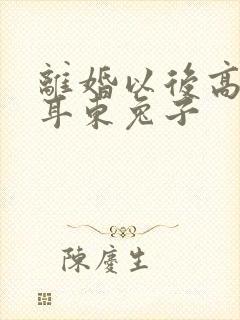 離婚以後高
耳東兔子
陳慶生